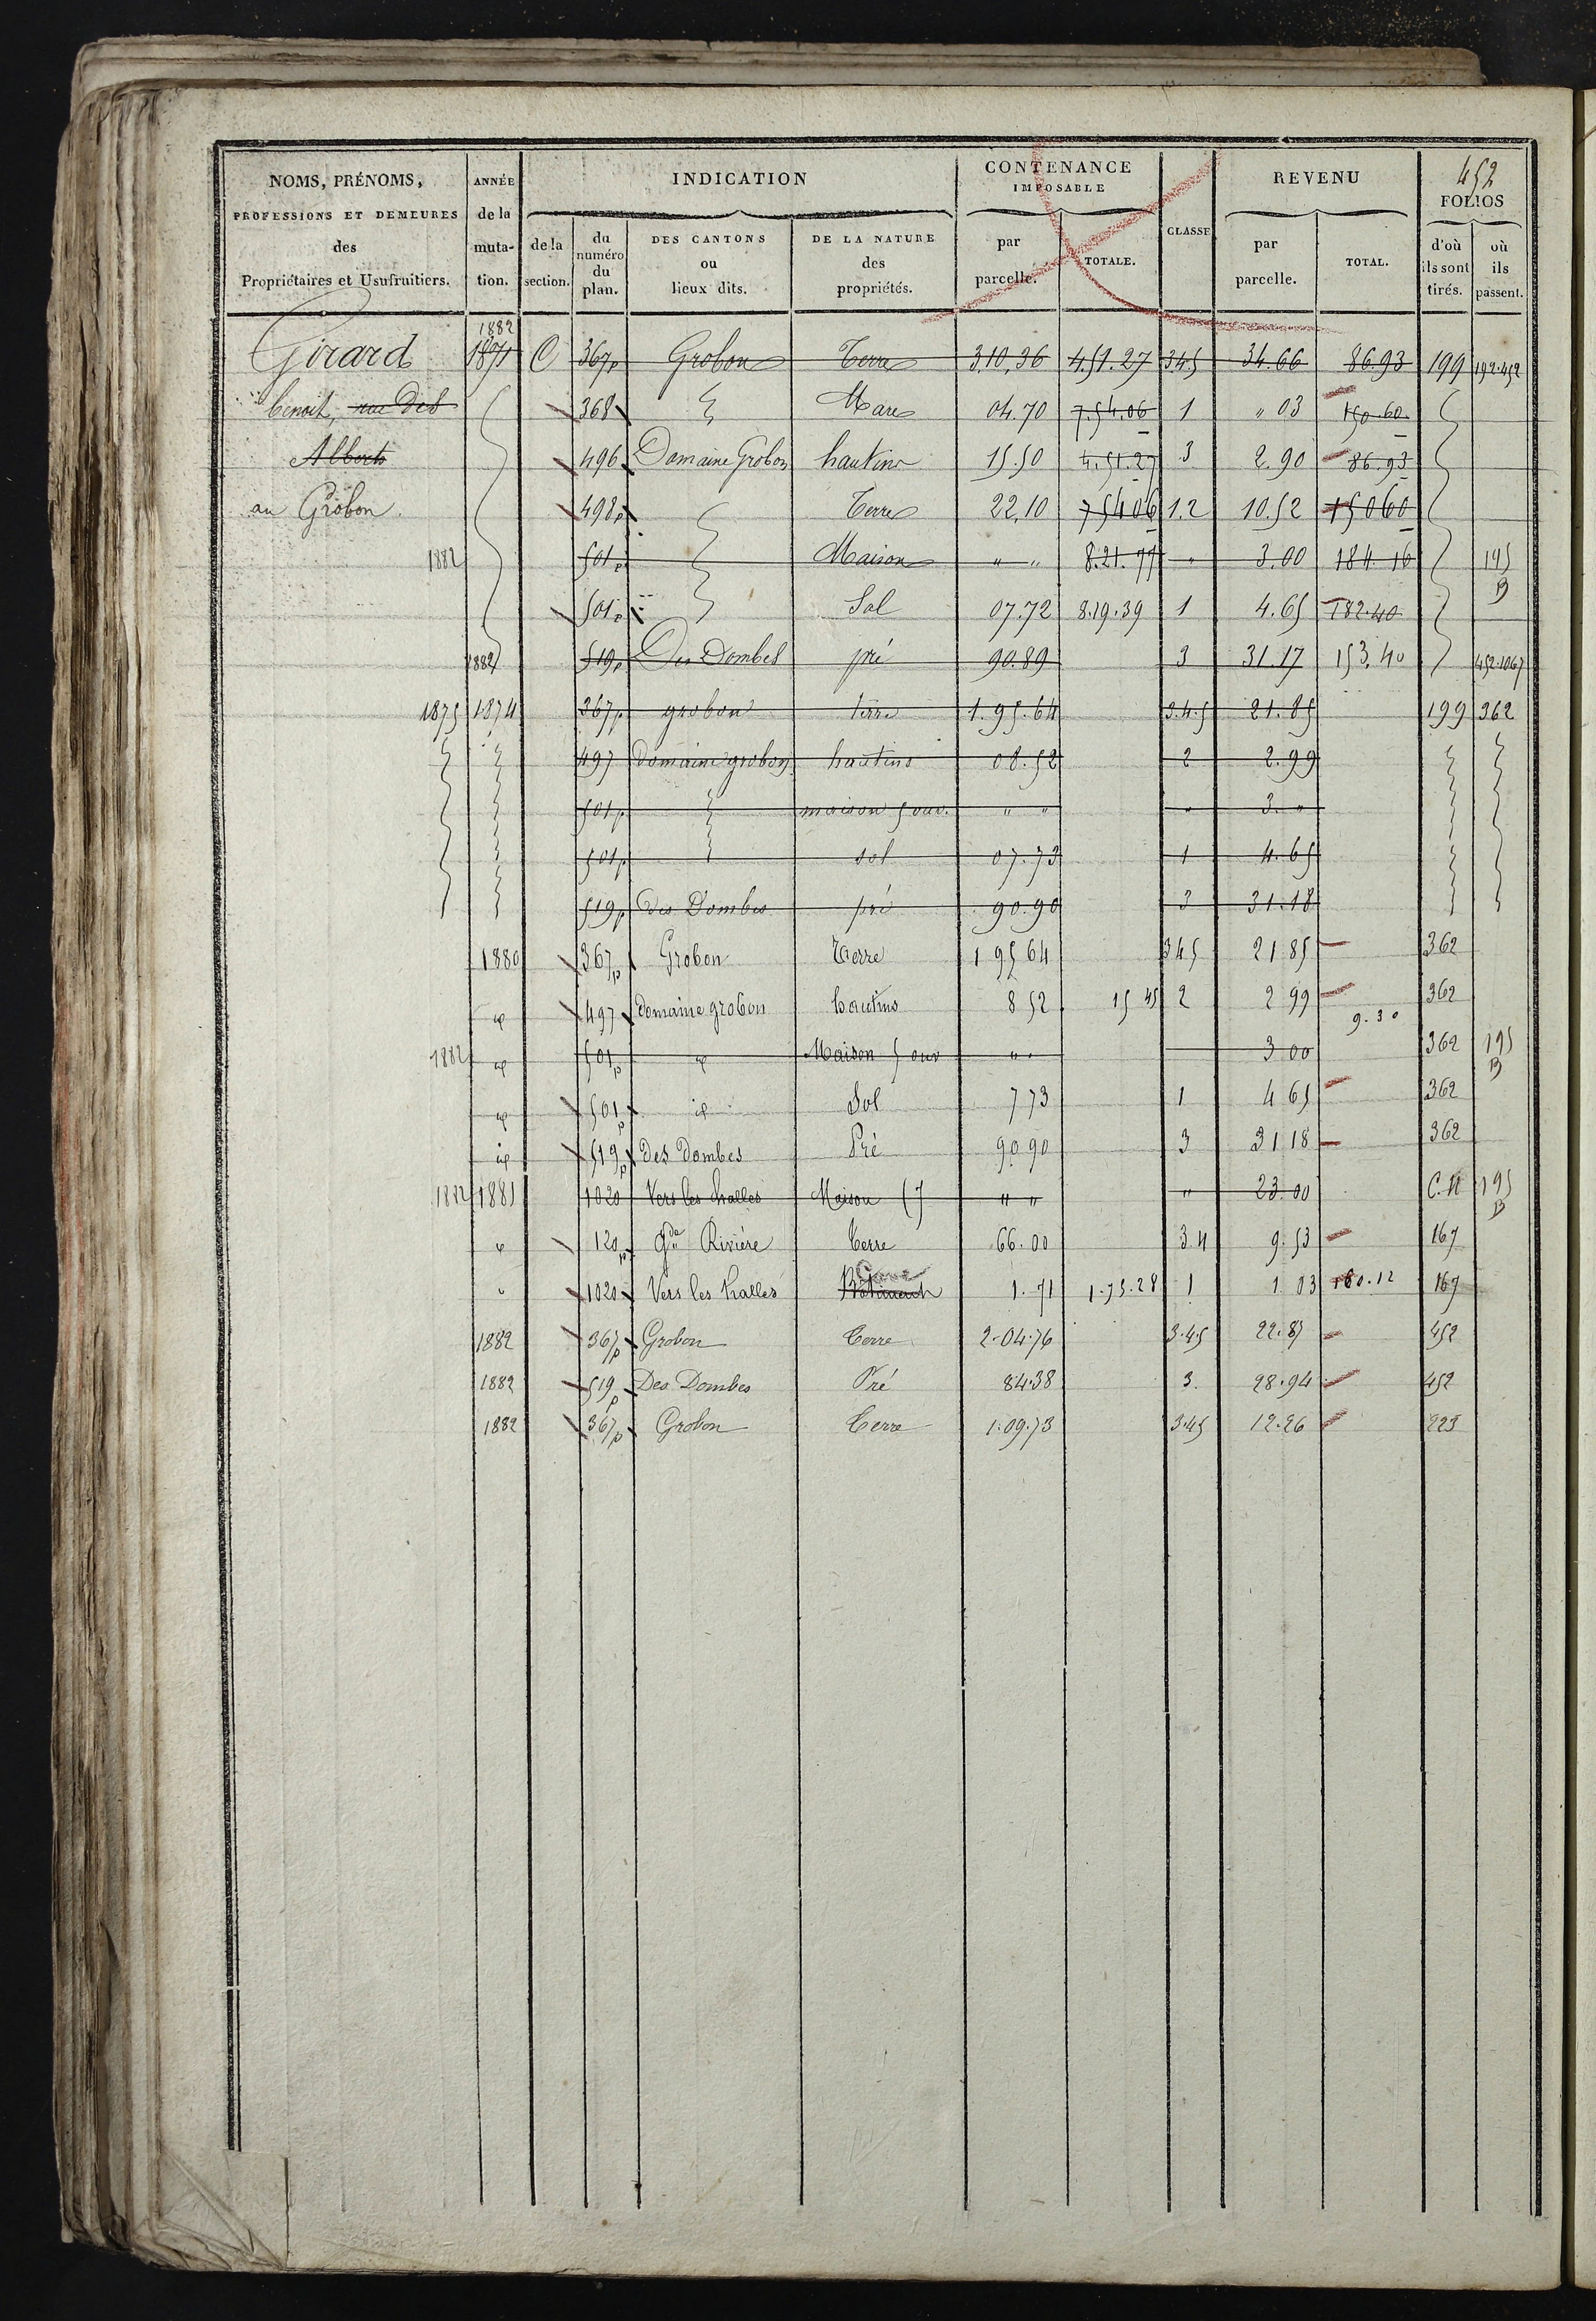 452
NOMS, PRÉNOMS, PROFESSIONS ET DEMEURES des Propriétaires et Usufruitiers.
ANNÉE de la muta-tion.
INDICATION
de la section.
du numéro du plan.
DES CANTONS ou lieux dits.
DE LA NATURE des propriétés.
CONTENANCE IMPOSABLE
par parcelle.
TOTALE.
CLASSE
REVENU
par parcelle.
TOTAL.
FOLIOS
d'où ils sont tirés.
où ils passent.
1882
Girard 1871 C 367p Grobon Terre 3.10.36 4.51.27 345 34.66 86.93 199 192.452
benoit, rue des 368 Mare 04.70 7.54.06 1 " 03 150.60
Alberts 496 Domaine Grobon hautins 15.50 4.51.27 3 2.90 86.93
au Grobon. 498p Terre 22.10 75406 1.2 10.52 15060
1882 501p Maison " " 8.21.77 " 3.00 184.16 195 B
501p Sol 07.72 8.19.39 1 4.65 182.40
1882 519p Des Dombes pré 90.89 3 31.17 153.40 452.1067
1875 1874 367p grobon terre 1.95.64 3.4.5 21.85 199 362
497 Domaine grobon hautins 08.52 2 2.99
501p maison 5 ouv. " " " 3. "
501p sol 07.73 1 4.65
519p Des Dombes pré 90.90 3 31.18
1880 367p Grobon Terre 1 95 64 345 21 85 362
id 497 Domaine grobon hautins 8 52 15 45 2 2 99 362
9.30
1882 id 501p id Maison 5 ouv " " 3 00 362 195 B
id 501p id Sol 7 73 1 4 65 362
id 519p Des Dombes Pré 90 90 3 31 18 362
1882 1881 1020 Vers les halles Maison (7 " " " 23.00 C.N 195 B
id 120p Gde Rivière Terre 66.00 3.4 9.53 167
Cave
" 1020 Vers les halles Bâtiment 1.71 1.75.28 1 1 03 180.12 167
1882 367p Grobon Terre 2.04.76 3.4.5 22.87 452
1882 519p Des Dombes Pré 84.38 3. 28.94 452
1882 367p Grobon Terre 1.09.73 3.45 12.26 223